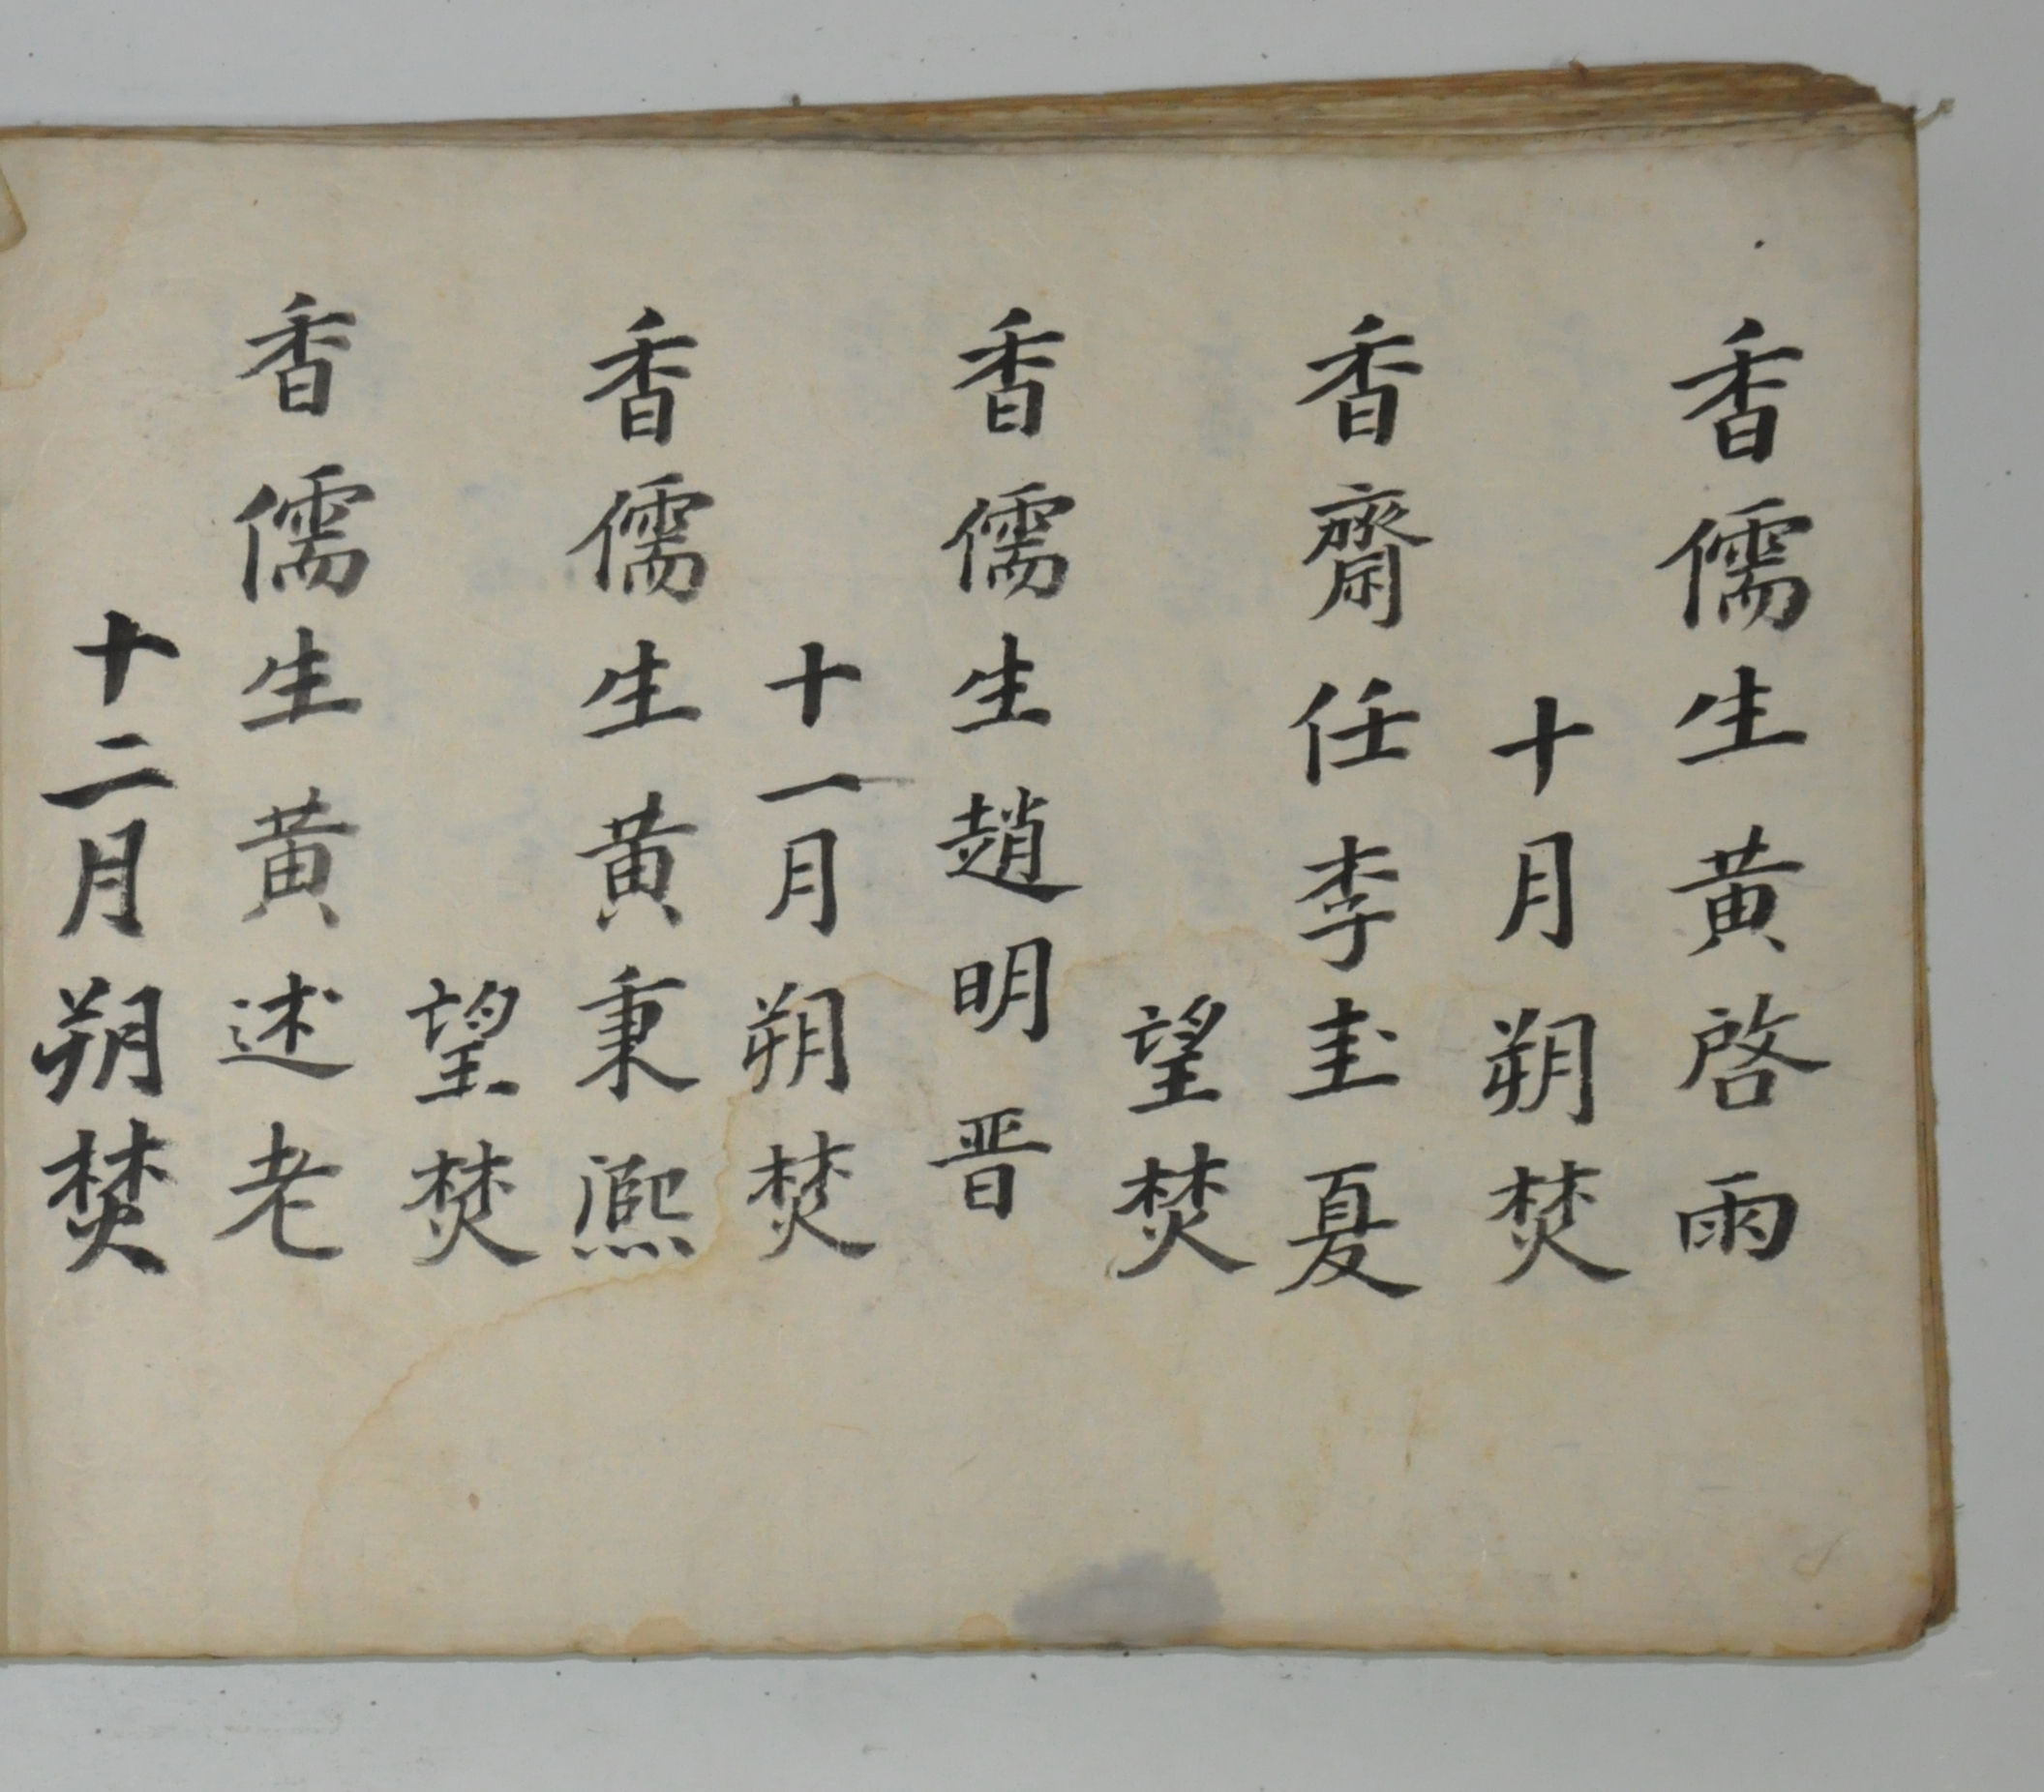 香儒生黃啓雨
十月朔焚
香齋任李圭夏
望焚
香儒生趙明晋
十一月朔焚
香儒生黃秉熈
望焚
香儒生黃述老
十二月朔焚